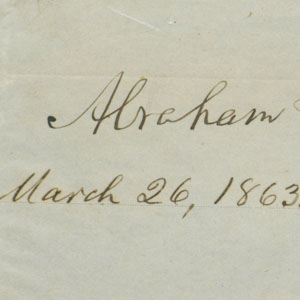 Abraham
March 26, 1863.